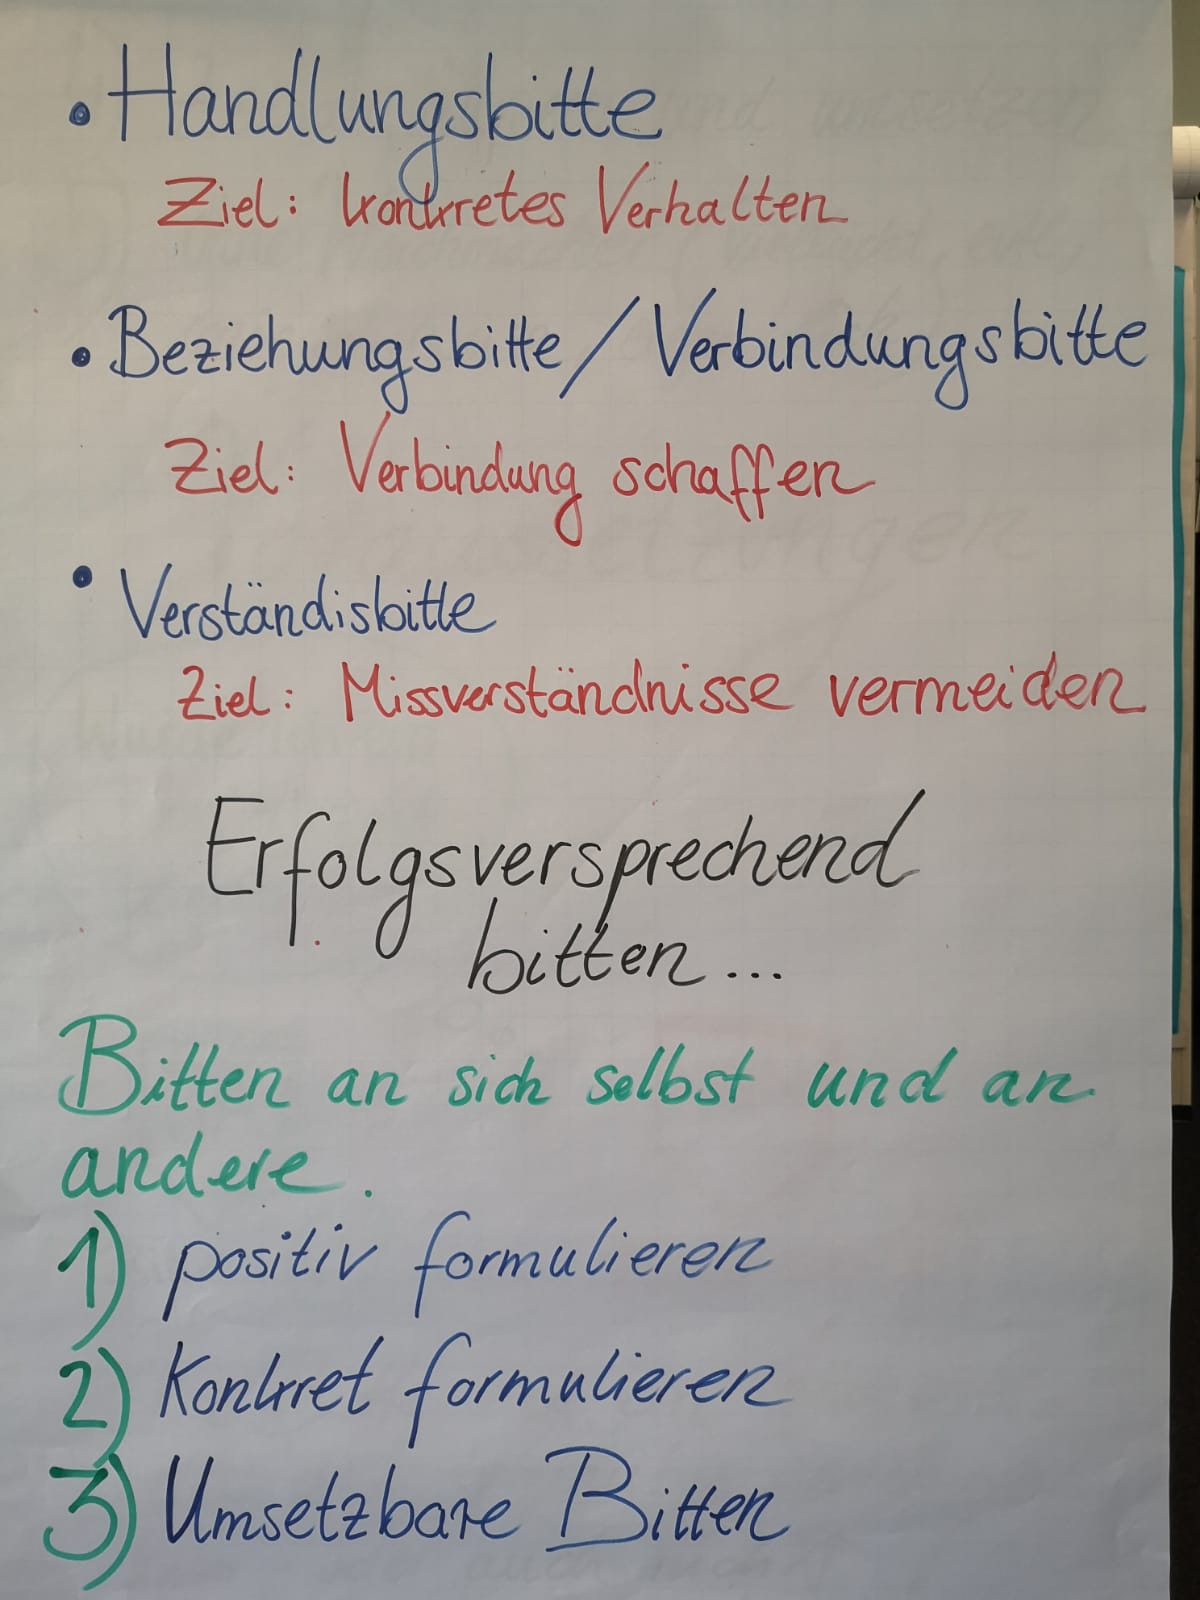 • Handlungsbitte
Ziel: konkretes Verhalten
• Beziehungsbitte / Verbindungsbitte
Ziel: Verbindung schaffen
• Verständisbitte
Ziel: Missverständnisse vermeiden
Erfolgsversprechend
bitten...
Bitten an sich selbst und an
andere.
1) positiv formulieren
2) Konkret formulieren
3) Umsetzbare Bitten